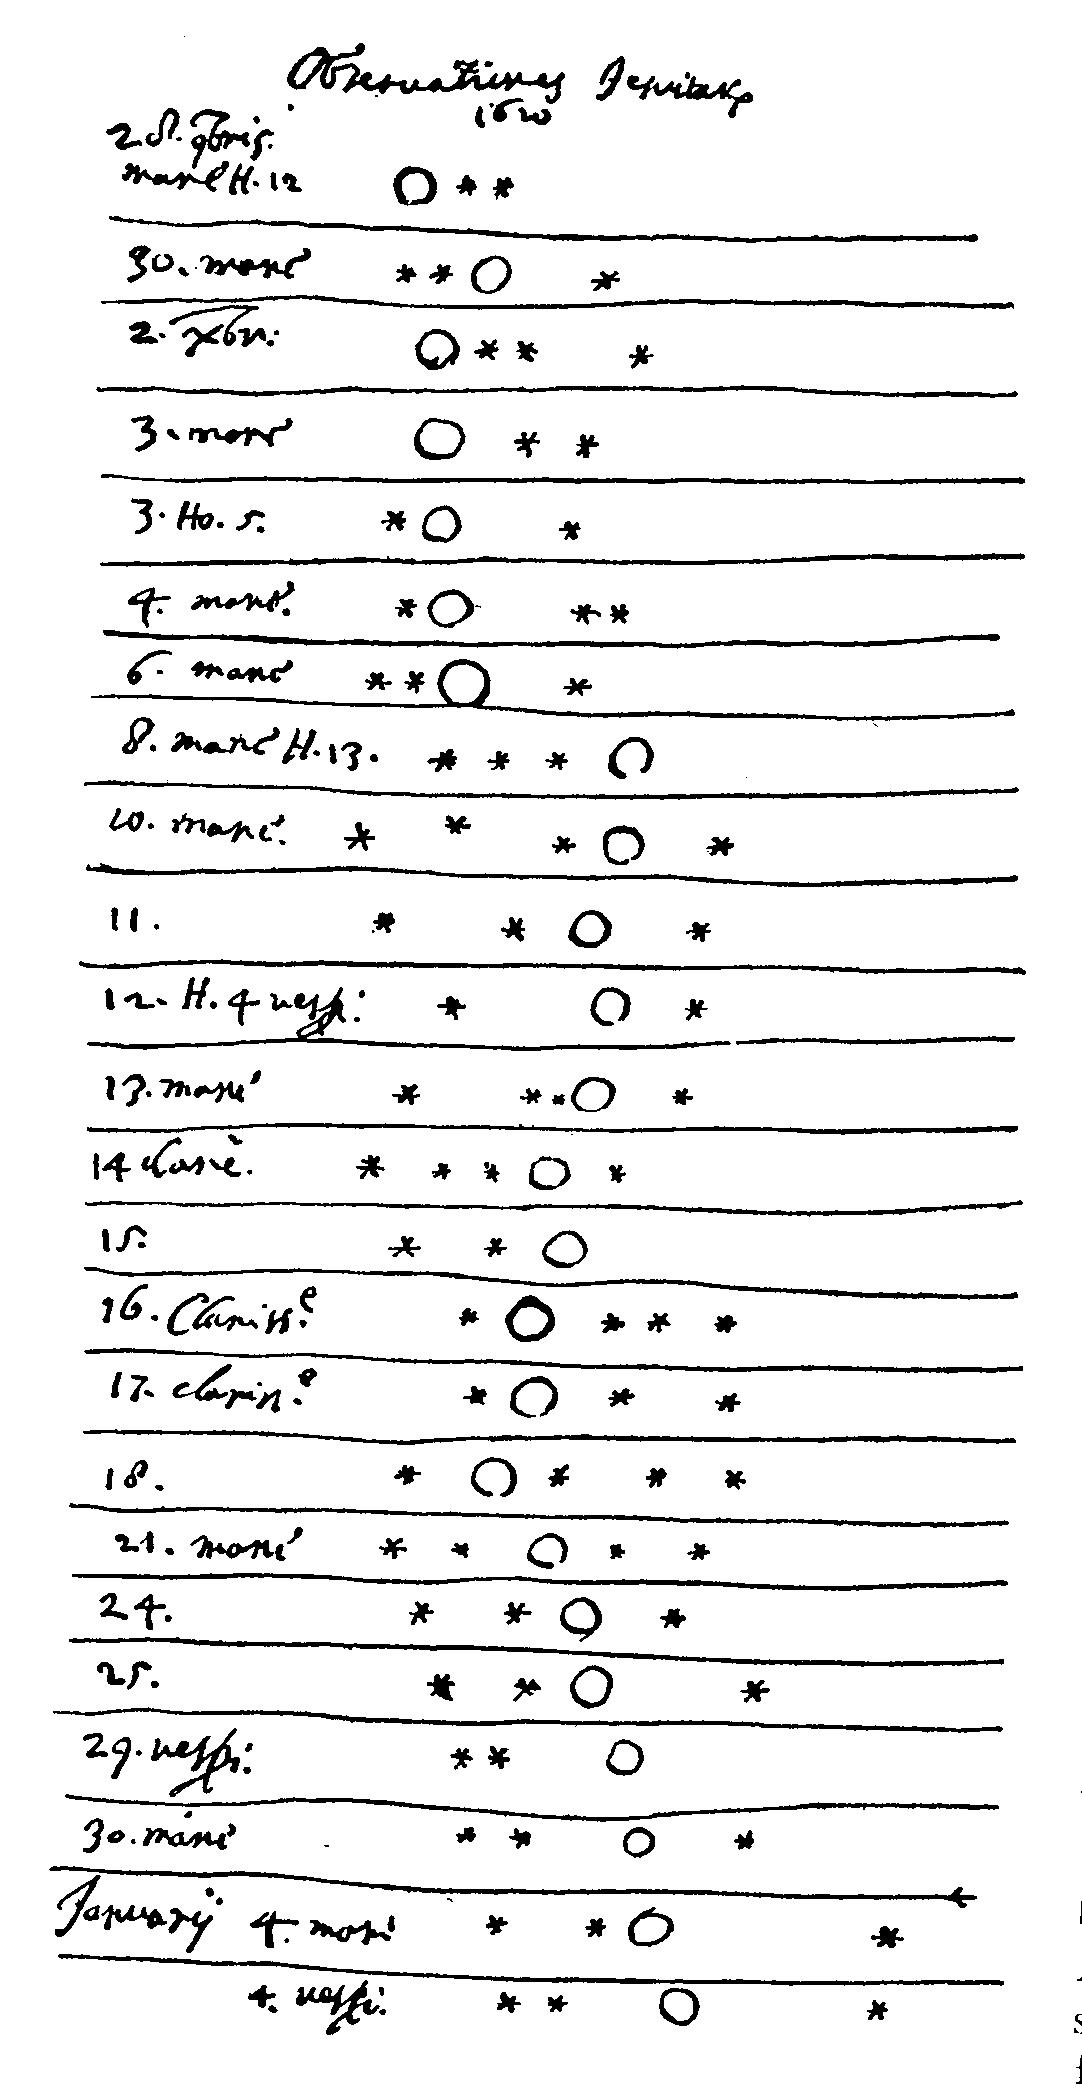 Observationes Jesuitar
1610
2. d. 9bris.
mane H. 12
30. mane
2. Xbr:
3. mane
3. Ho. 5.
4. mane.
6. mane
8. mane H. 13.
10. mane.
11.
12. H. 4 vesp:
13. mane
14 clarè.
15.
16. Clariss.e
17. clariss.e
18.
21. mane
24.
25.
29. vesp:
30. mane
January 4. mane
4. vesp: